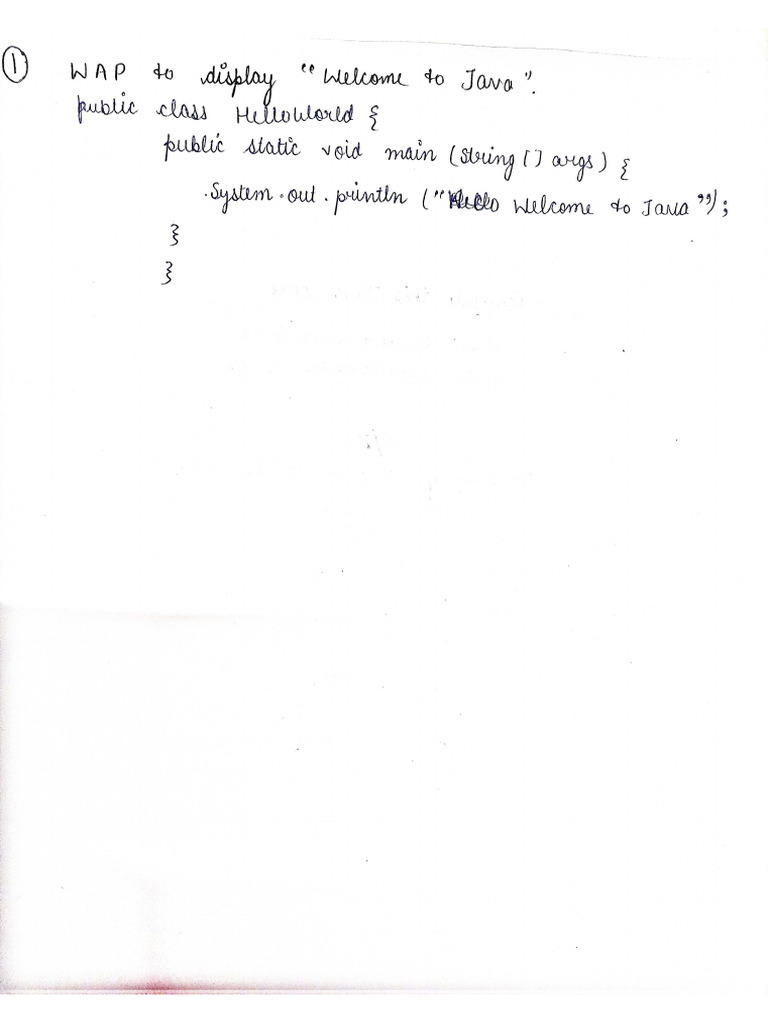 ① WAP to display "Welcome to Java".
public class HelloWorld {
public static void main (String [] args) {
System.out.println ("Hello Welcome to Java");
}
}